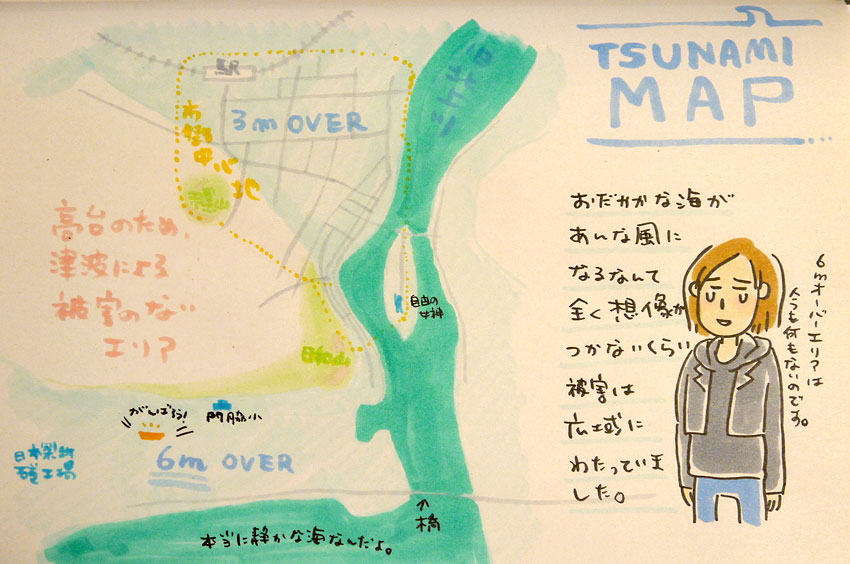 TSUNAMI
MAP
駅
3m OVER
市街中心地
旧北上川
羽黒山
高台のため、
津波による
被害のない
エリア
自由の
女神
日和山
がんばろう!
門脇小
日本製紙
工場
6m OVER
↑
橋
本当に静かな海なんだよ。
おだやかな海が
あんな風に
なるなんて
全く想像が
つかないくらい
被害は
広域に
わたっていま
した。
6mオーバーエリアは
今も何もないのです。